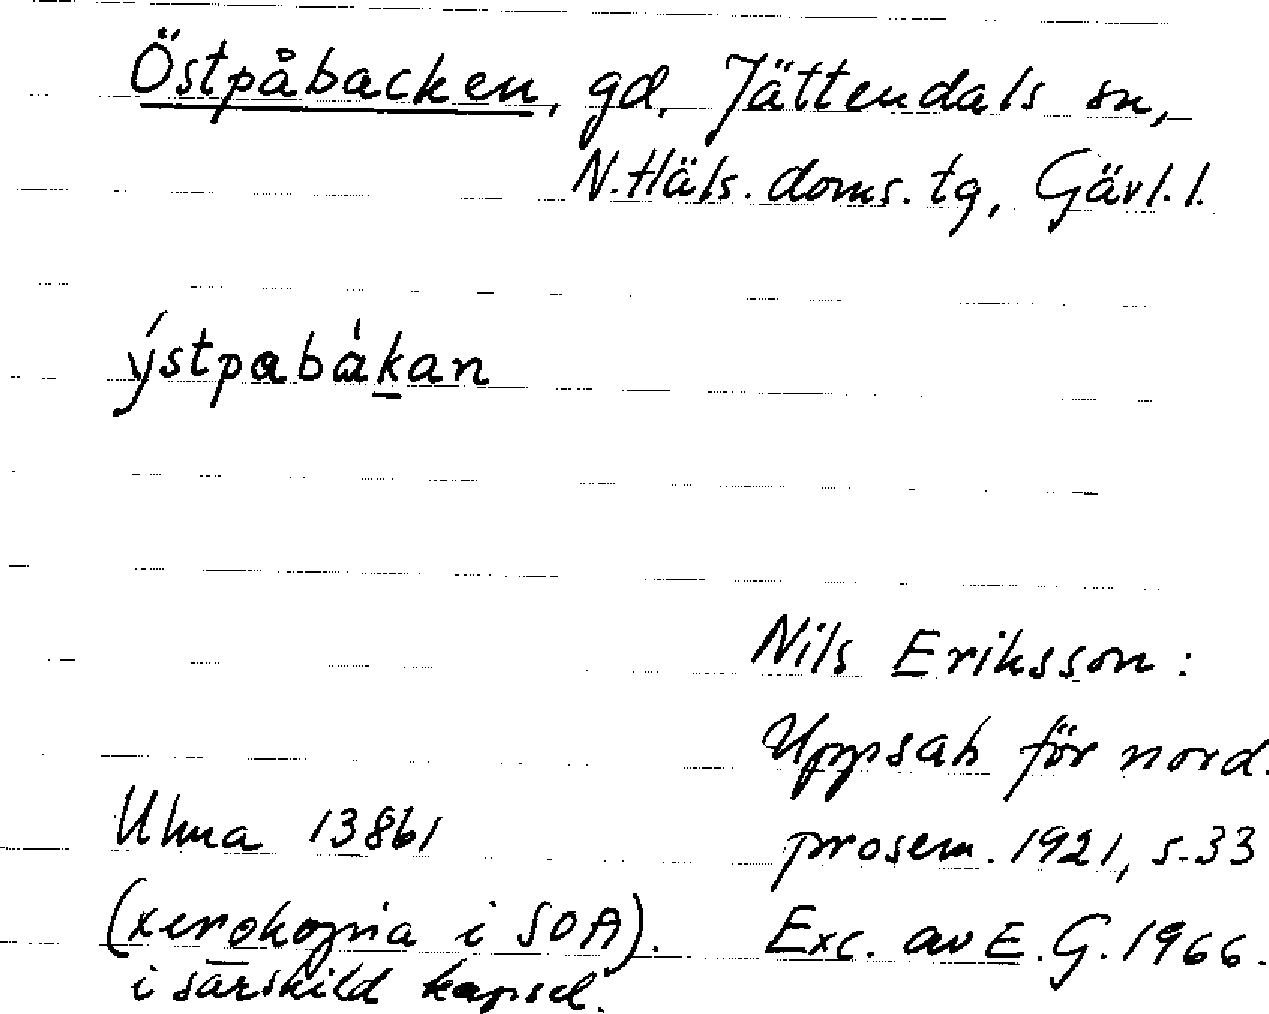 Östpåbacken, gd, Jättendals sn,
N. Häls. doms. tg, Gävl. l.
ýstpabàkan
Nils Eriksson:
Uppsats för nord.
prosem. 1921, s. 33
Exc. av E. G. 1966.
Ulma 13861
(xerokopia i SOA).
i särskild kapsel.